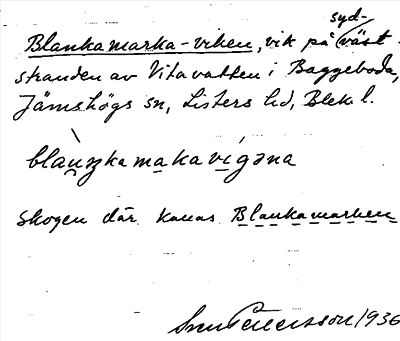 syd-
Blankamarka-viken, vik på (väst-
stranden av Vitavatten i Baggeboda,
Jämshögs sn, Listers hd, Blek. l.
blàŋka maka vígəna
skogen där kallas Blankamarken
Sven Pettersson 1936